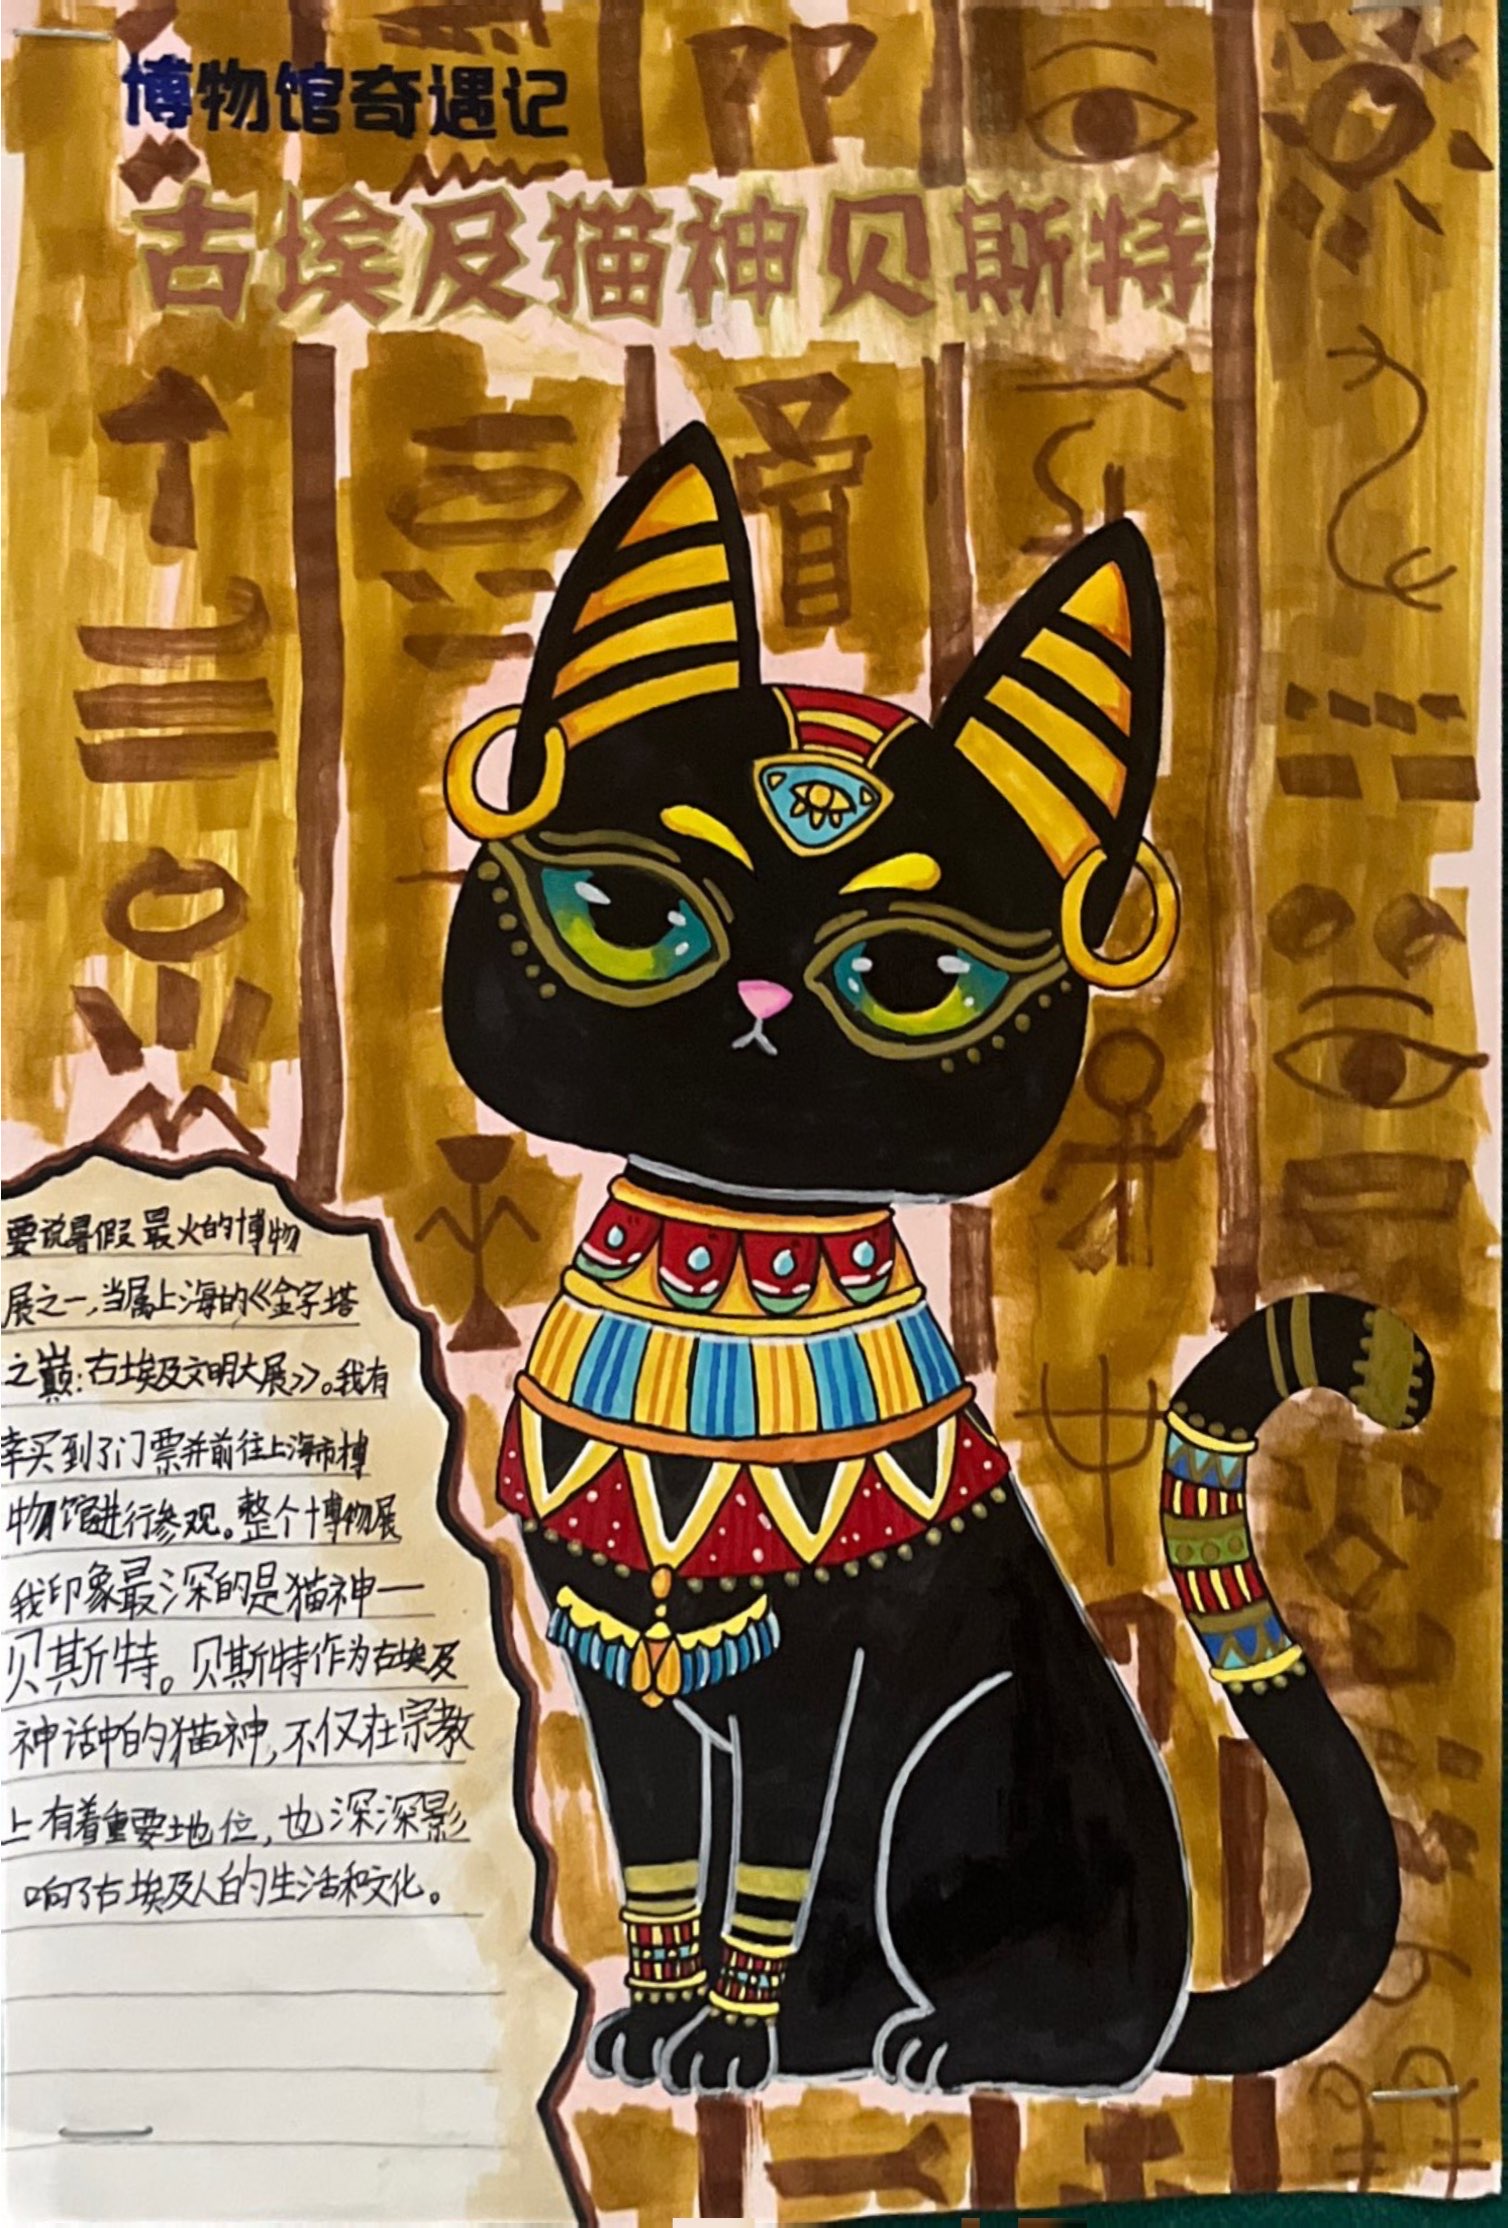 博物馆奇遇记
古埃及猫神贝斯特
要说暑假最火的博物
展之一,当属上海的《金字塔
之巅:古埃及文明大展》。我有
幸买到了门票并前往上海市博
物馆进行参观。整个博物展
我印象最深的是猫神一
贝斯特。贝斯特作为古埃及
神话中的猫神,不仅在宗教
上有着重要地位,也深深影
响了古埃及人的生活和文化。